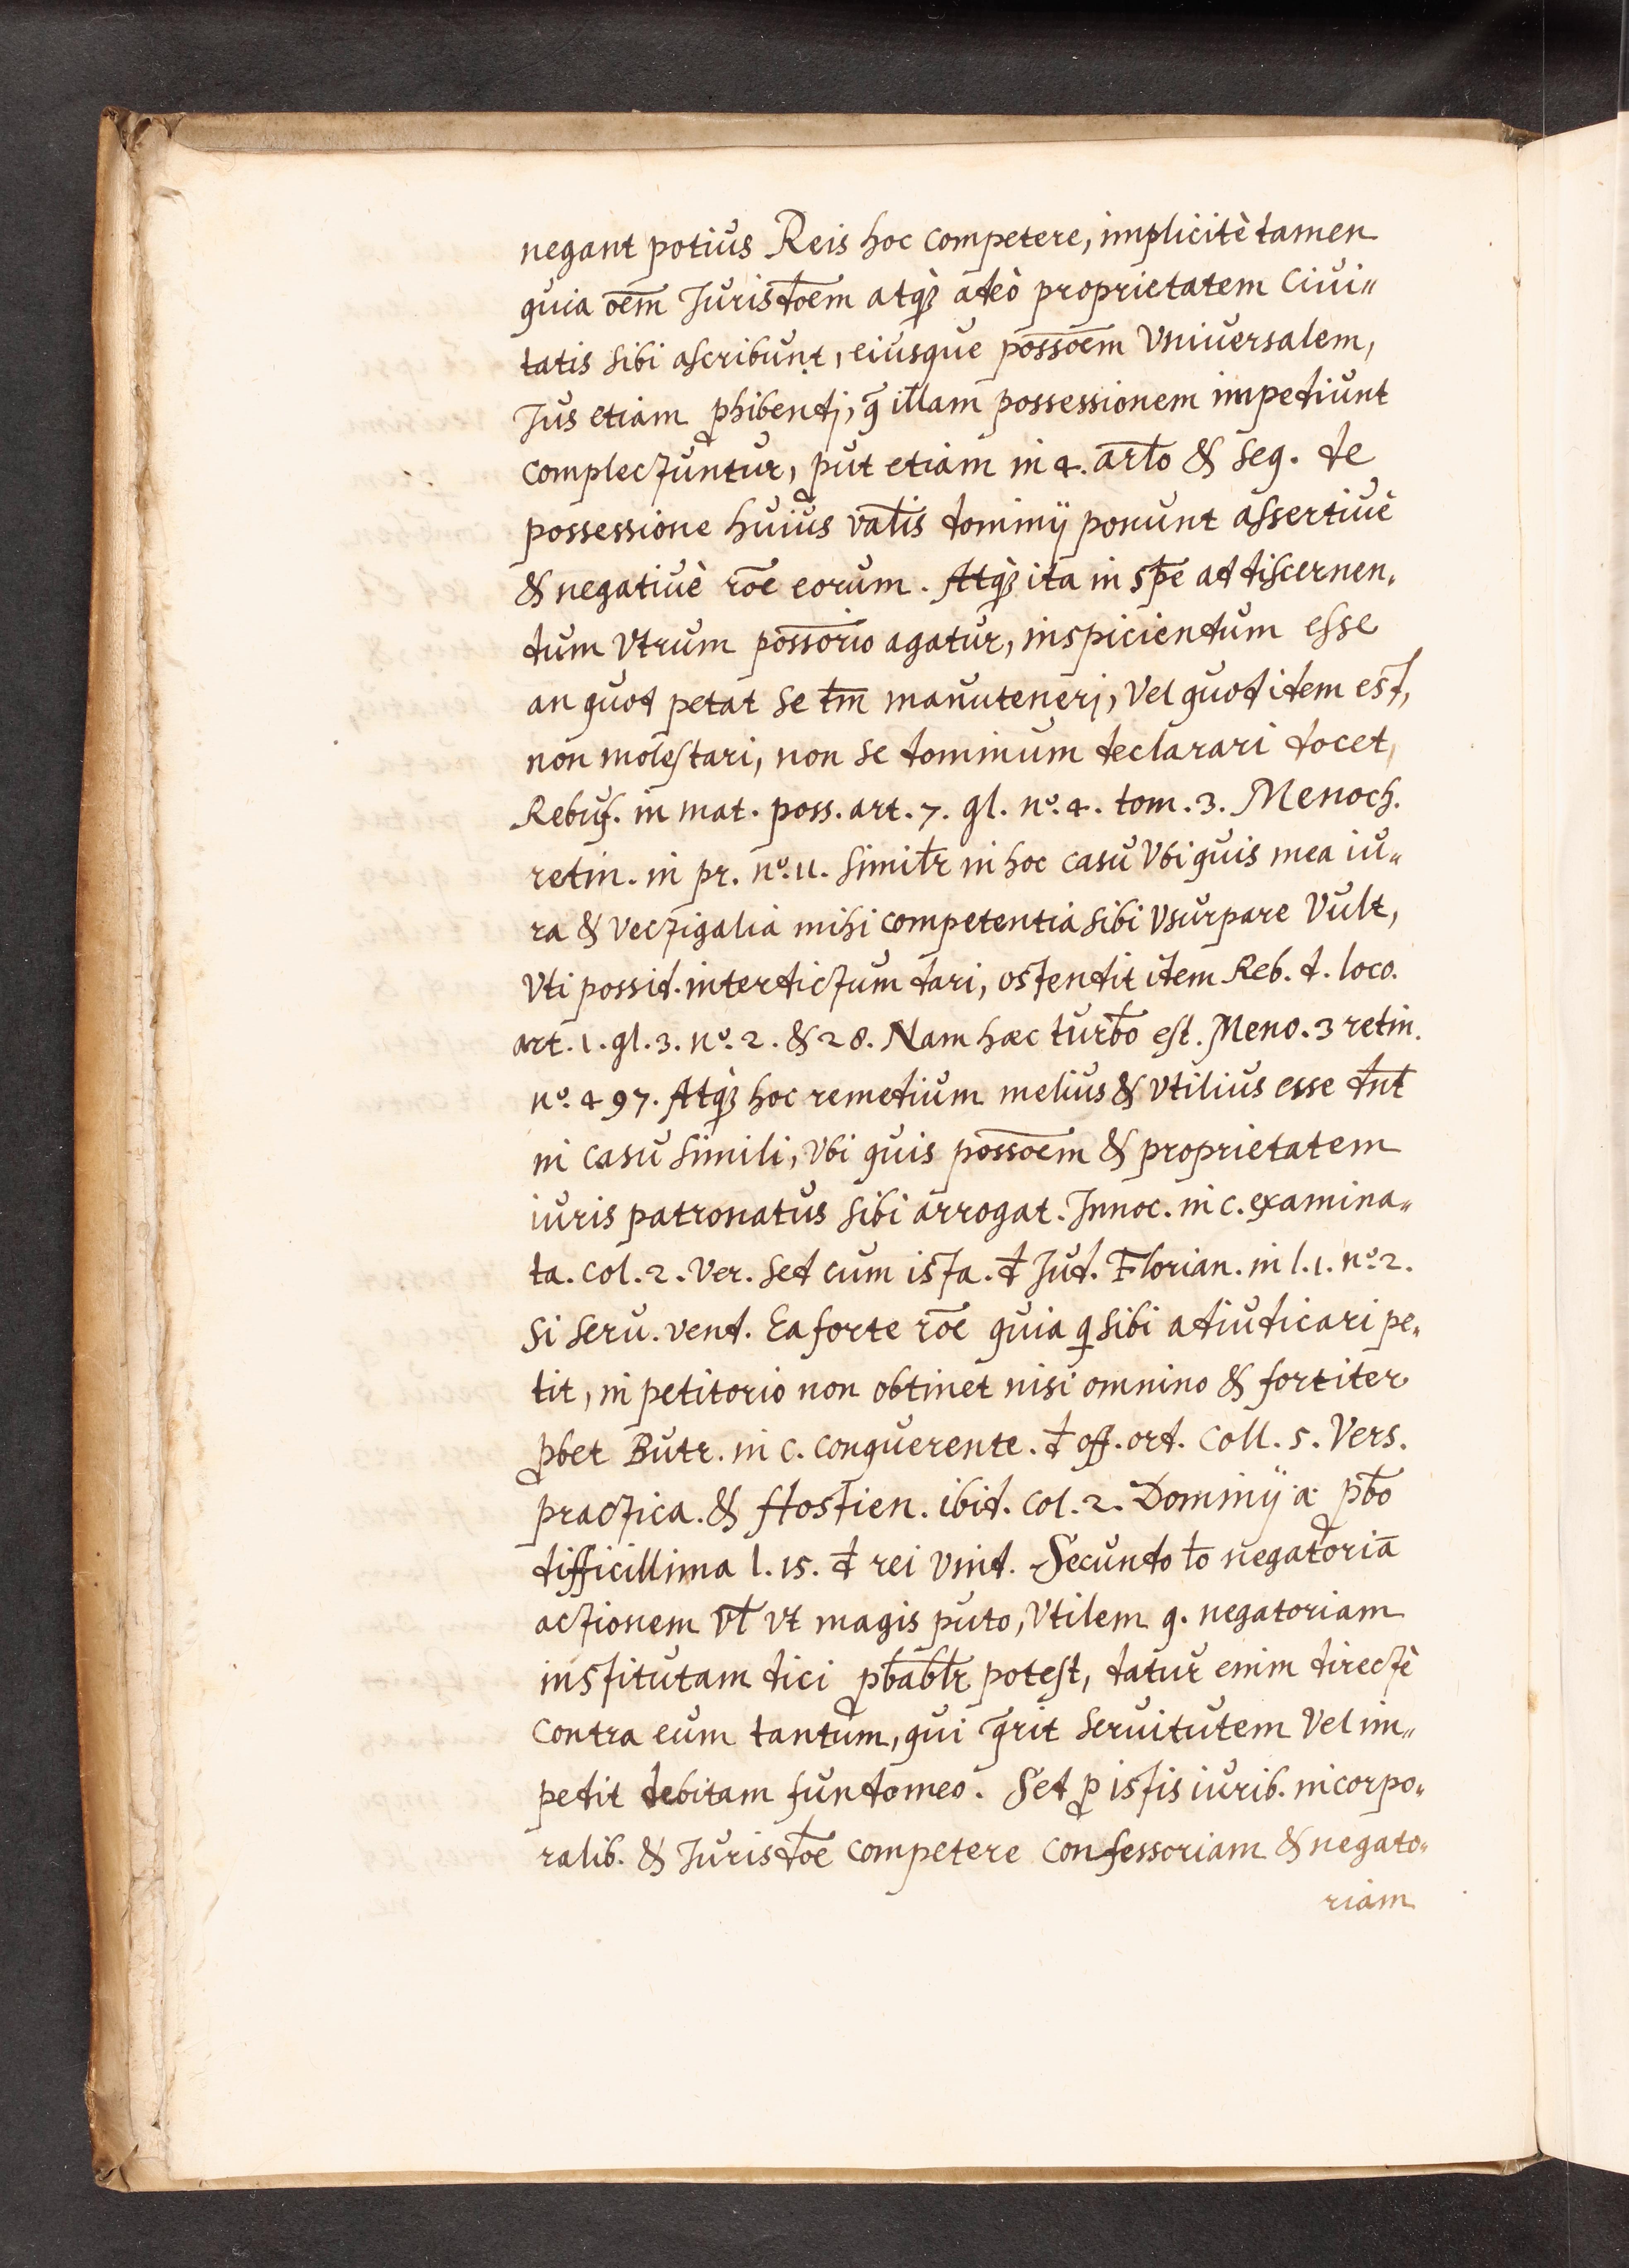 negant potius Reis hoc competere, implicitè tamen
quia oēm Jurisdōem atq̀ꝫ adeò proprietatem Ciui„
tatis sibi ascribunt, eiusque possōem Vniuersalem,
Jus etiam ꝓhibendj, q̄ illam possessionem impediunt
complectuntur, ꝓut etiam in 4. artl̄o & seq. de
possessione huius vatl̄is dominij ponunt assertiuè
& negatiuè rōe eorum. Atq̀ꝫ ita in sp̄e ad discernen„
dum vtrum possōrio agatur, inspiciendum esse
an quod petat se tm̄ manutenerj, Vel quod idem est,
non molestari, non se dominum declarari docet,
Rebuf. in mat. poss. art. 7. gl. nº. 4. tom. 3. Menoch.
retin. in pr. nº. 11. Simitr̄ in hoc casu Vbi quis mea iu„
ra & vectigalia mihi competentia sibi Vsurpare Vult,
Vti possid. interdictum dari, ostendit idem Reb. d. loco.
art. 1. gl. 3. nº. 2. & 28. Nam hæc turb̄o est. Meno. 3 retin.
nº. 497. Atq̀ꝫ hoc remedium melius & vtilius esse dn̄t
in casu simili, Vbi quis possōem & proprietatem
iuris patronatus sibi arrogat. Innoc. in c. examina„
ta. col. 2. Ver. sed cum ista. đ Jud. Florian. in l. 1. nº. 2.
si seru. vend. Ea forte rōe quia q sibi adiudicari pe„
tit, in petitorio non obtinet nisi omnino & fortiter
ꝓbet Butr. in c. conquerente. đ off. ord. Coll. 5. Vers.
practica. & Hostien. ibid. Col. 2. Dominij a ꝓb̄o
difficillima l. 15. đ rei vind. Secundo l̄o negatoriā
actionem vl̄ vt magis puto, Vtilem q. negatoriam
institutam dici ꝓbabl̄r potest, datur enim directè
contra eum tantum, qui q̄rit seruitutem Vel im„
pedit debitam fundo meo. Sed ꝓ istis iurib. incorpo„
ralib. & Jurisdōe competere confessoriam & negato„
riam